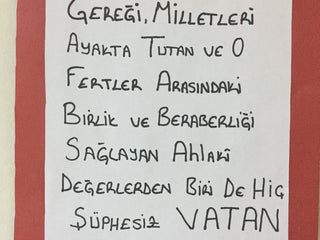 Gereği, Milletleri
Ayakta Tutan ve O
Fertler Arasındaki
Birlik ve Beraberliği
Sağlayan Ahlakî
Değerlerden Biri De Hiç
Şüphesiz VATAN